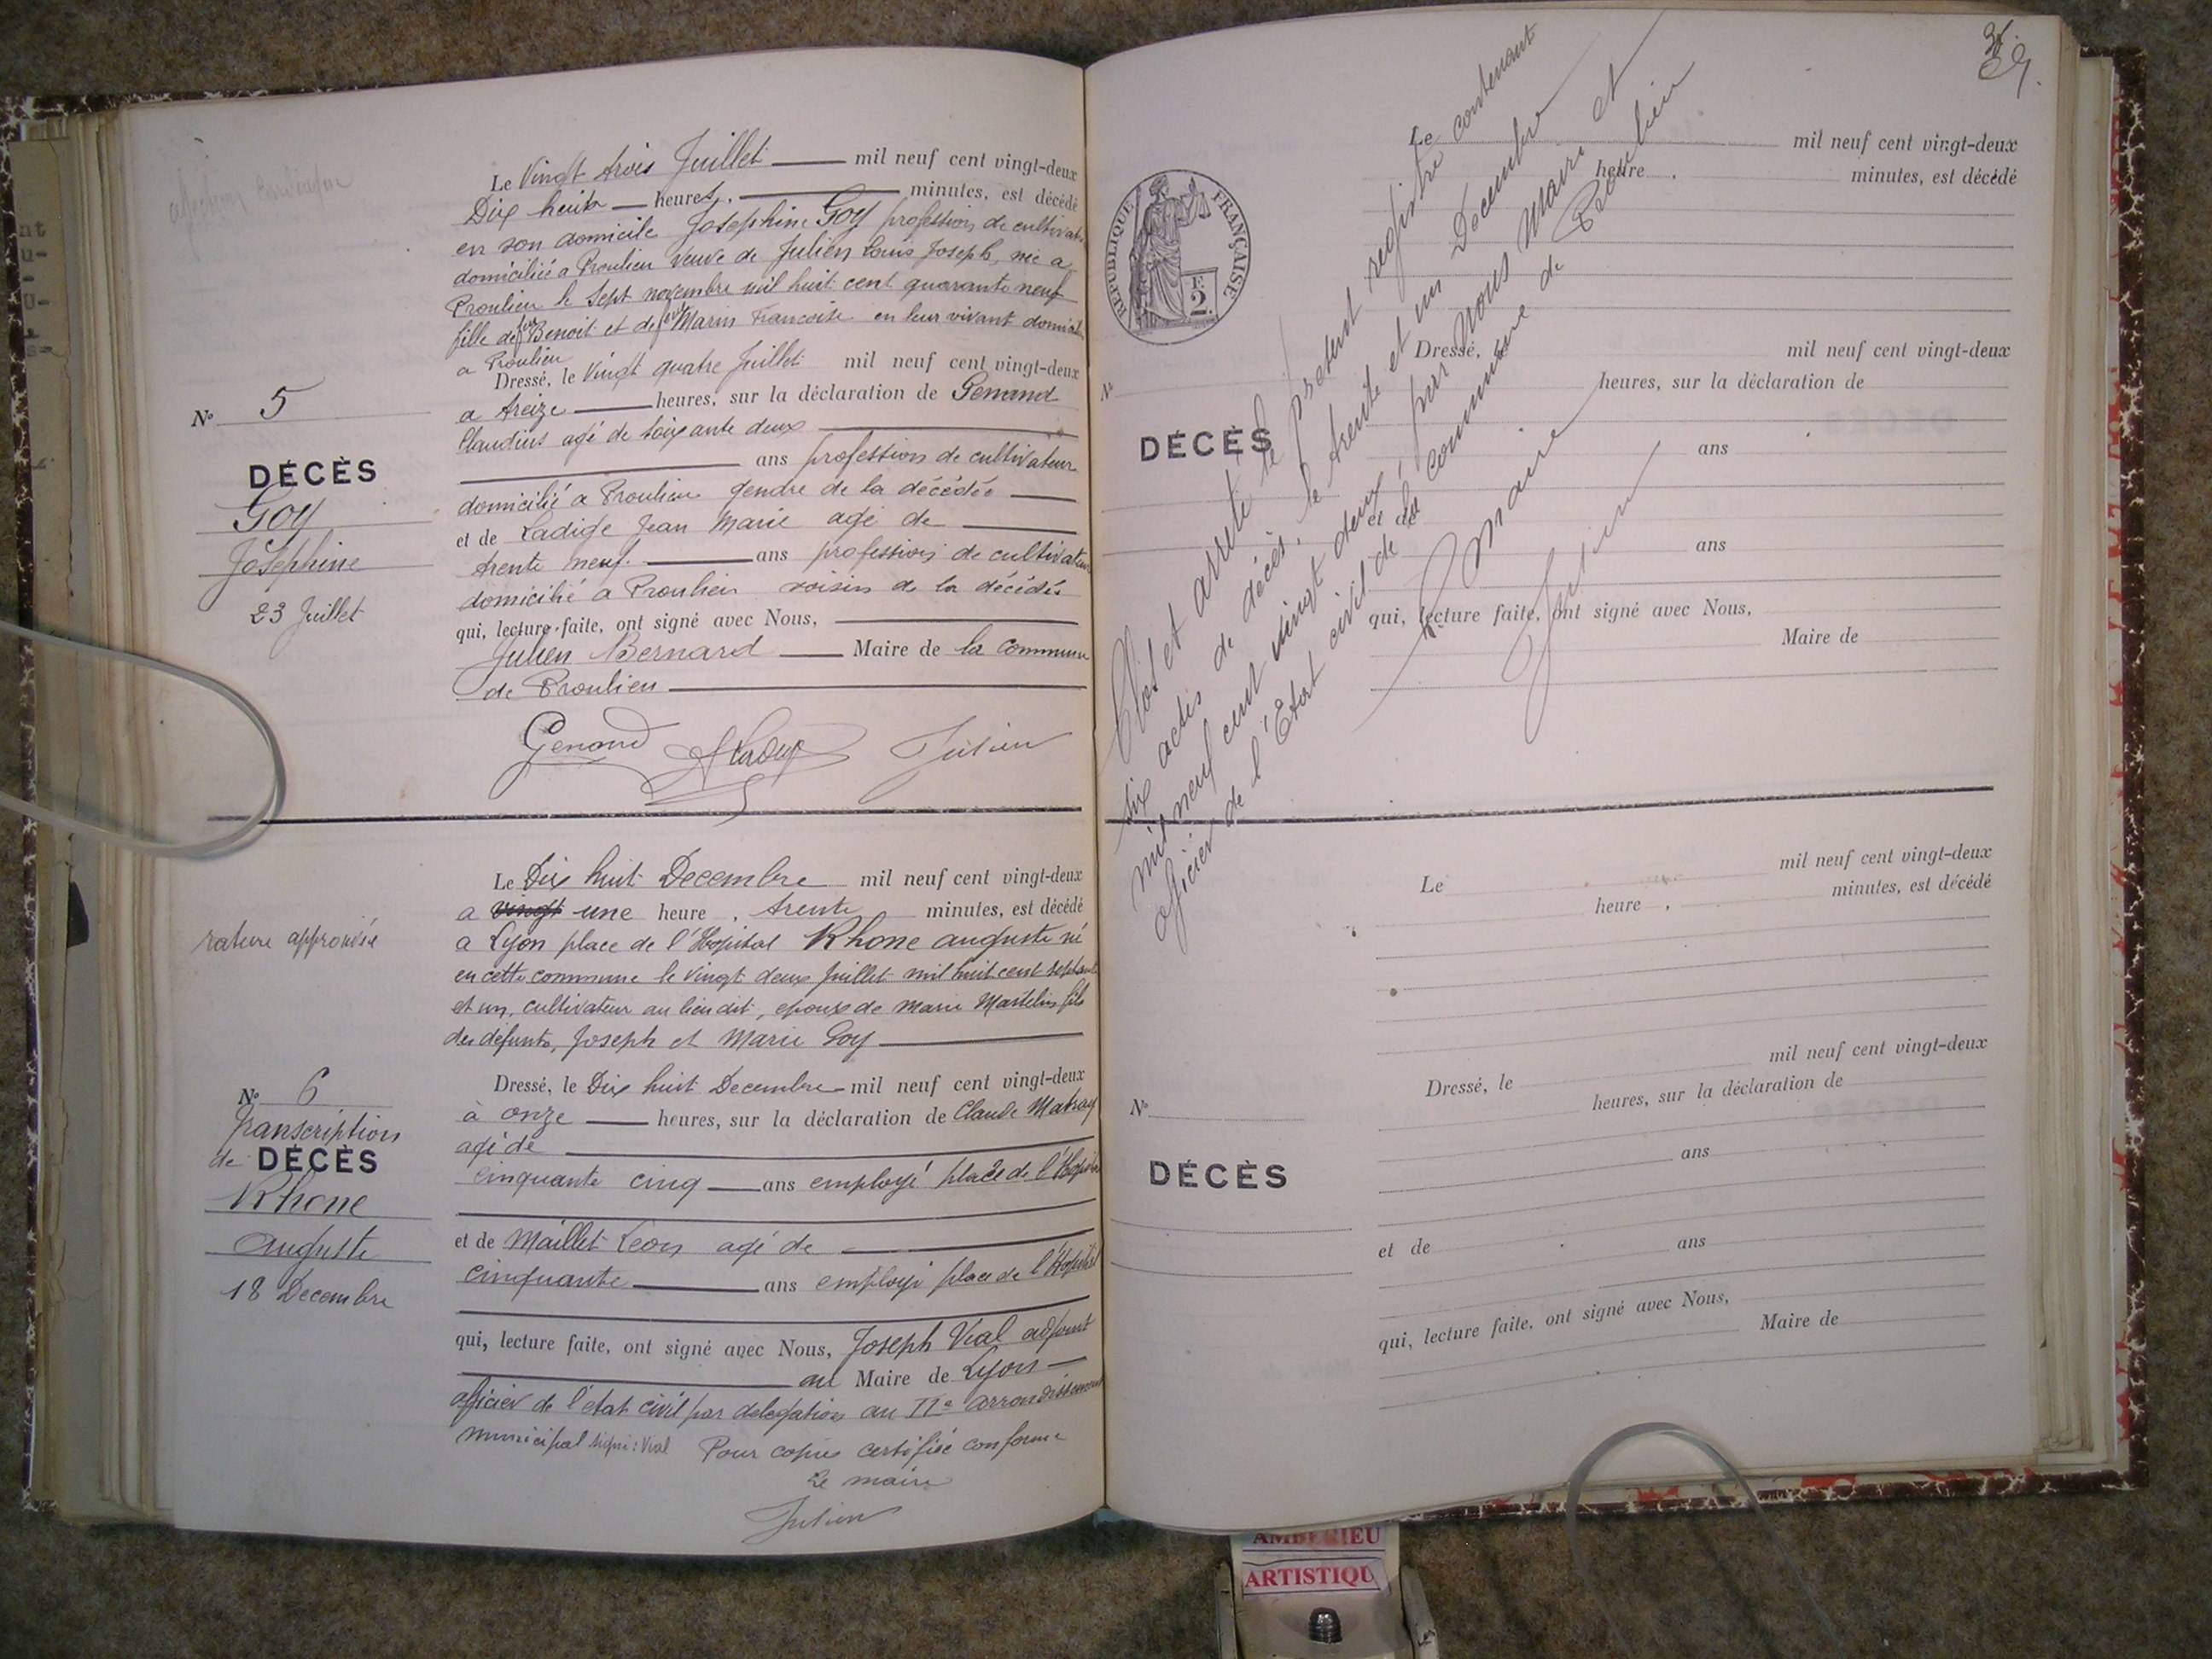 Le Vingt trois Juillet mil neuf cent vingt-deux
Dix huit heures, minutes, est décédé
en son domicile Joséphine Goy profession de cultivat
domiciliée a Proulieu Veuve de Julien Louis Joseph, née a
Proulieu le Sept novembre mil huit cent quarante neuf
fille de feu Benoit et de feue Marin Francoise en leur vivant domicil
a Proulieu
Dressé, le Vingt quatre Juillet mil neuf cent vingt-deux
a treize heures, sur la déclaration de Genand
Claudius agé de soixante deux
ans profession de cultivateur
domicilié a Proulieu gendre de la décédée
et de Ladige Jean Marie agé de
trente neuf. ans profession de cultivateur
domicilié a Proulieu voisin de la décédée
qui, lecture faite, ont signé avec Nous,
Julien Bernard Maire de la commune
de Proulieu
Genand Julien
N° 5
DÉCÈS
Goy
Joséphine
23 Juillet
Le Dix huit Decembre mil neuf cent vingt-deux
a vingt une heure, trente minutes, est décédé
a Lyon place de l'Hopital Rhone auguste né
en cette commune le vingt deux Juillet mil huit cent septante
et un, cultivateur au lieu dit, epoux de Marie Martelin fils
des défunts, Joseph et Marie Goy
rature approuvée
Dressé, le Dix huit Decembre mil neuf cent vingt-deux
à onze heures, sur la déclaration de Claude Matray
agé de
cinquante cinq ans employé place de l'Hopital
et de Maillet Léon agé de
cinquante ans employé place de l'Hopital
qui, lecture faite, ont signé avec Nous, Joseph Vial adjoint
au Maire de Lyon
officier de l'état civil par delegation au IIe arrondissement
municipal signé: Vial Pour copie certifiée conforme
Le maire
Julien
N° 6
Transcription
de DÉCÈS
Rhone
Auguste
18 Decembre
RÉPUBLIQUE FRANÇAISE
2
Clos et arrêté le présent registre contenant
six actes de décès, le trente et un Decembre
mil neuf cent vingt deux, par Nous Maire et
officier de l'Etat civil de la commune de Proulieu
Le maire
Julien
Le mil neuf cent vingt-deux
heure, minutes, est décédé
Dressé, le mil neuf cent vingt-deux
heures, sur la déclaration de
N°
DÉCÈS
ans
et de
ans
qui, lecture faite, ont signé avec Nous,
Maire de
Le mil neuf cent vingt-deux
heure, minutes, est décédé
Dressé, le mil neuf cent vingt-deux
heures, sur la déclaration de
N°
ans
DÉCÈS
et de ans
qui, lecture faite, ont signé avec Nous,
Maire de
AMBERIEU
ARTISTIQU